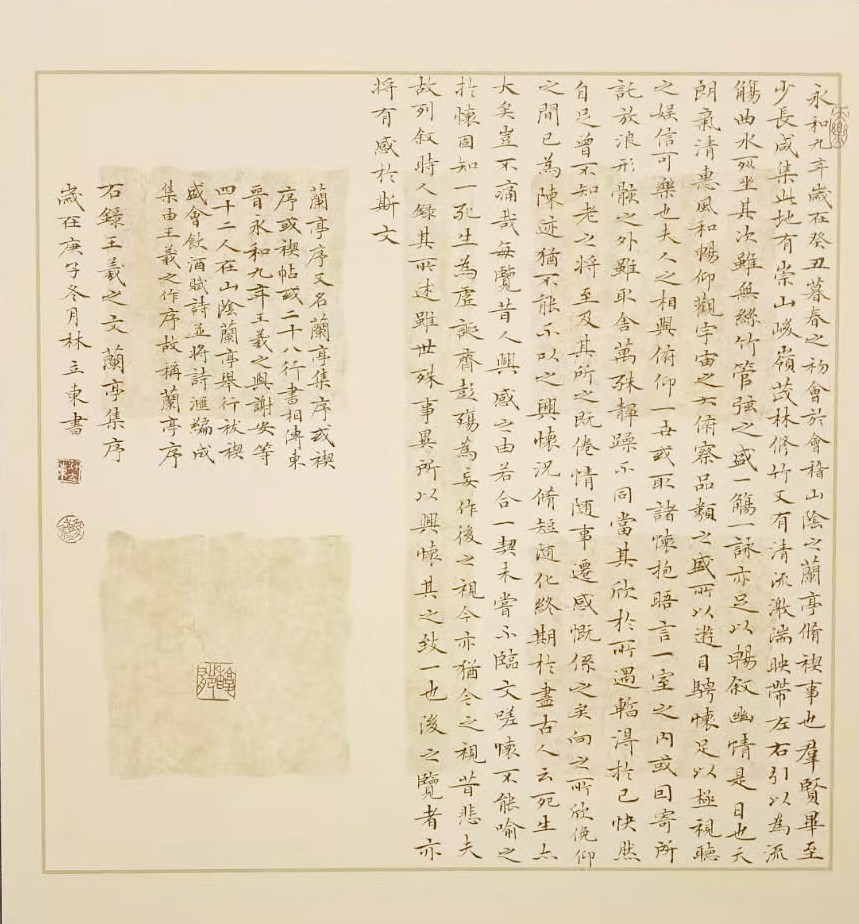 永和九年歲在癸丑暮春之初會於會稽山陰之蘭亭脩禊事也羣賢畢至
少長咸集此地有崇山峻嶺茂林修竹又有清流激湍映帶左右引以為流
觴曲水列坐其次雖無絲竹管弦之盛一觴一詠亦足以暢叙幽情是日也天
朗氣清惠風和暢仰觀宇宙之大俯察品類之盛所以遊目騁懷足以極視聽
之娛信可樂也夫人之相與俯仰一世或取諸懷抱晤言一室之內或因寄所
託放浪形骸之外雖取舍萬殊靜躁不同當其欣於所遇暫得於己快然
自足曾不知老之將至及其所之既倦情隨事遷感慨係之矣向之所欣俛仰
之間已為陳迹猶不能不以之興懷況脩短隨化終期於盡古人云死生亦
大矣豈不痛哉每覽昔人興感之由若合一契未嘗不臨文嗟懷不能喻之
於懷固知一死生為虛誕齊彭殤為妄作後之視今亦猶今之視昔悲夫
故列叙時人錄其所述雖世殊事異所以興懷其之致一也後之覽者亦
將有感於斯文
蘭亭序又名蘭亭集序或禊
序或禊帖或二十八行書相傳東
晉永和九年王羲之與謝安等
四十二人在山陰蘭亭舉行祓禊
盛會飲酒賦詩並將詩滙編成
集由王羲之作序故稱蘭亭序
右錄王羲之文蘭亭集序
歲在庚子冬月林立東書